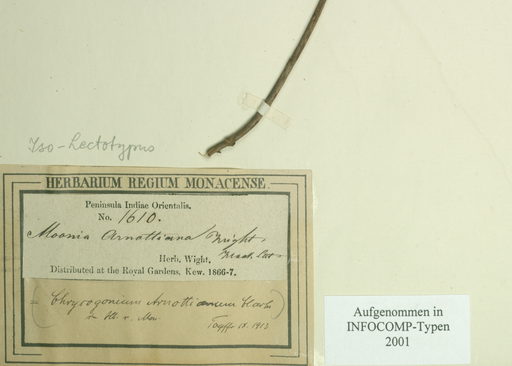 Iso-Lectotypus
HERBARIUM REGIUM MONACENSE.
Peninsula Indiae Orientalis.
No. 1610.
Moonia Arnottiana Wight.
Herb. Wight.
Distributed at the Royal Gardens, Kew. 1866-7.
= Chrysogonium Arnottianum
IX. 1913
Aufgenommen in
INFOCOMP-Typen
2001